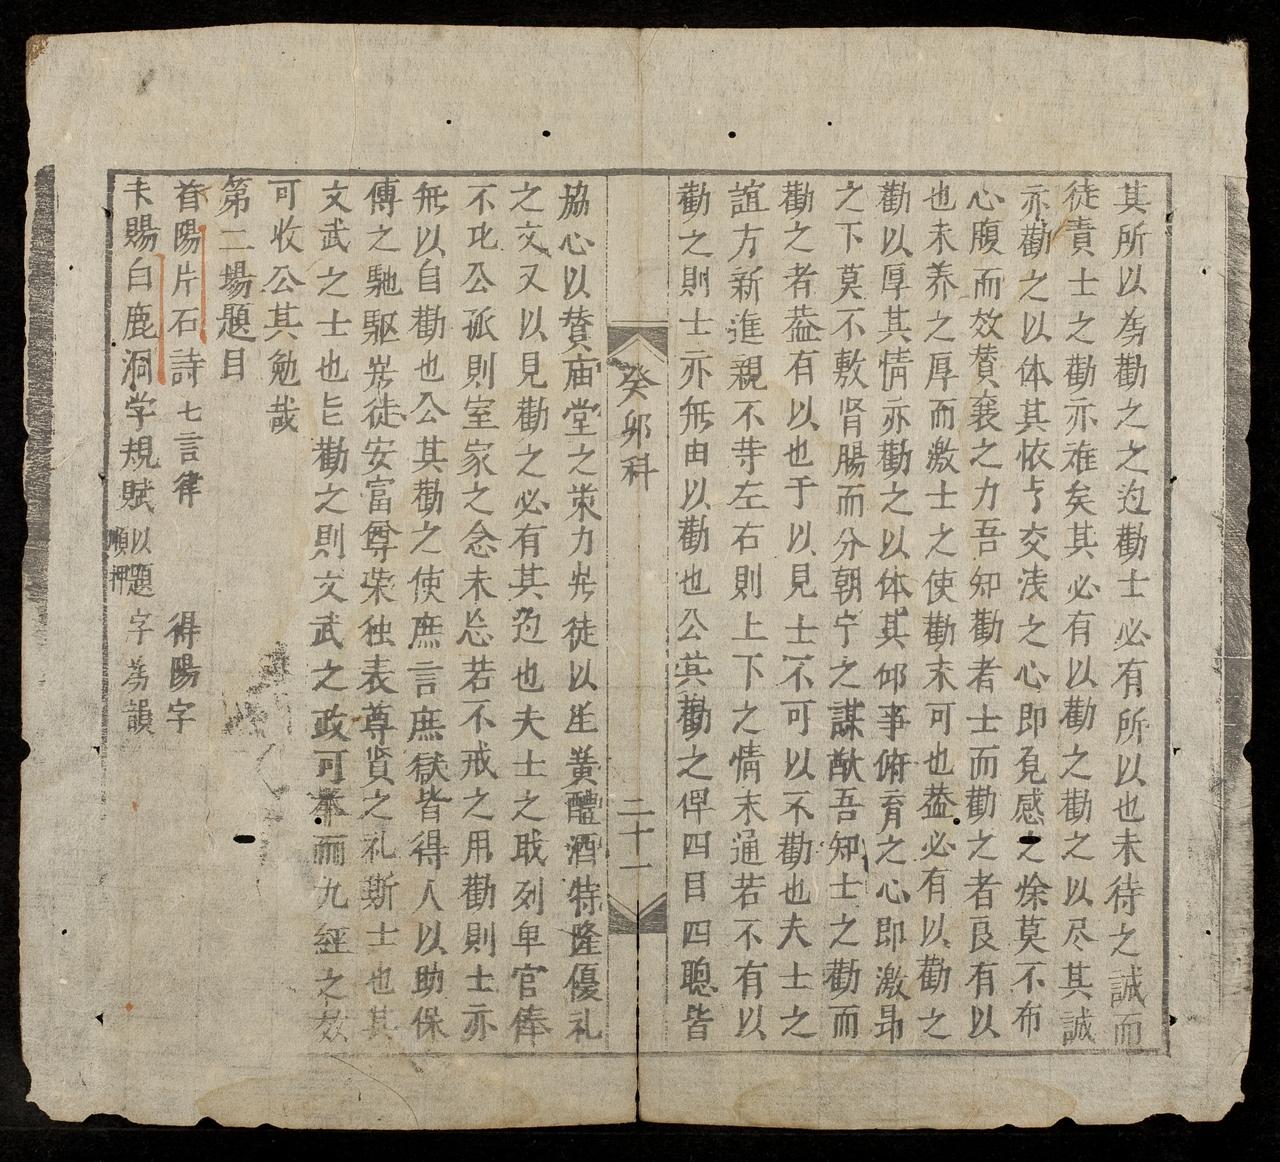 其所以為勸之之迩勸士必有所以也未待之誠而
徒責士之勸亦难矣其必有以勸之勸之以尽其誠
亦勸之以体其依与交浅之心即見感之馀莫不布
心腹而效賛襄之力吾知勸者士而勸之者良有以
也未养之厚而激士之使勸未可也葢必有以勸之
勸以厚其情亦勸之以体其仰事俯育之心即激昻
之下莫不敷肾腸而分朝宁之謀猷吾知士之勸而
勸之者葢有以也于以見士不可以不勸也夫士之
誼方新進親不䓁左右則上下之情未通若不有以
勸之則士亦無由以勸也公其勸之俾四目四聰皆
癸卯科
二十一
協心以賛庙堂之䇿力䒭徒以生黄醴酒特隆優礼
之文又以見勸之必有其迩也夫士之戢列卑官俸
不庀公孤則室家之念未忘若不戒之用勸則士亦
無以自勸也公其勸之使庶言庶獄皆得人以助保
傅之馳驱䒭徒安富尊荣独表尊賢之礼斯士也其
文武之士也㠯勸之則文武之政可舉而九經之效
可收公其勉哉
第二場題目
首陽片石詩 七言律 得陽字
夫賜白鹿洞学規賦 以題字為韻 順押